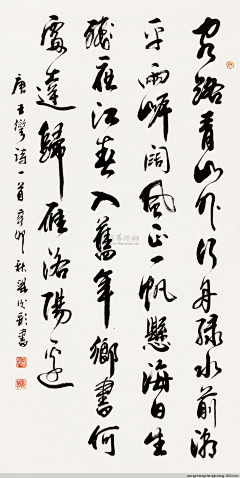 客路青山外行舟綠水前潮
平兩岸闊風正一帆懸海日生
殘夜江春入舊年鄉書何
處達歸雁洛陽邊
唐王灣詩一首辛卯秋書